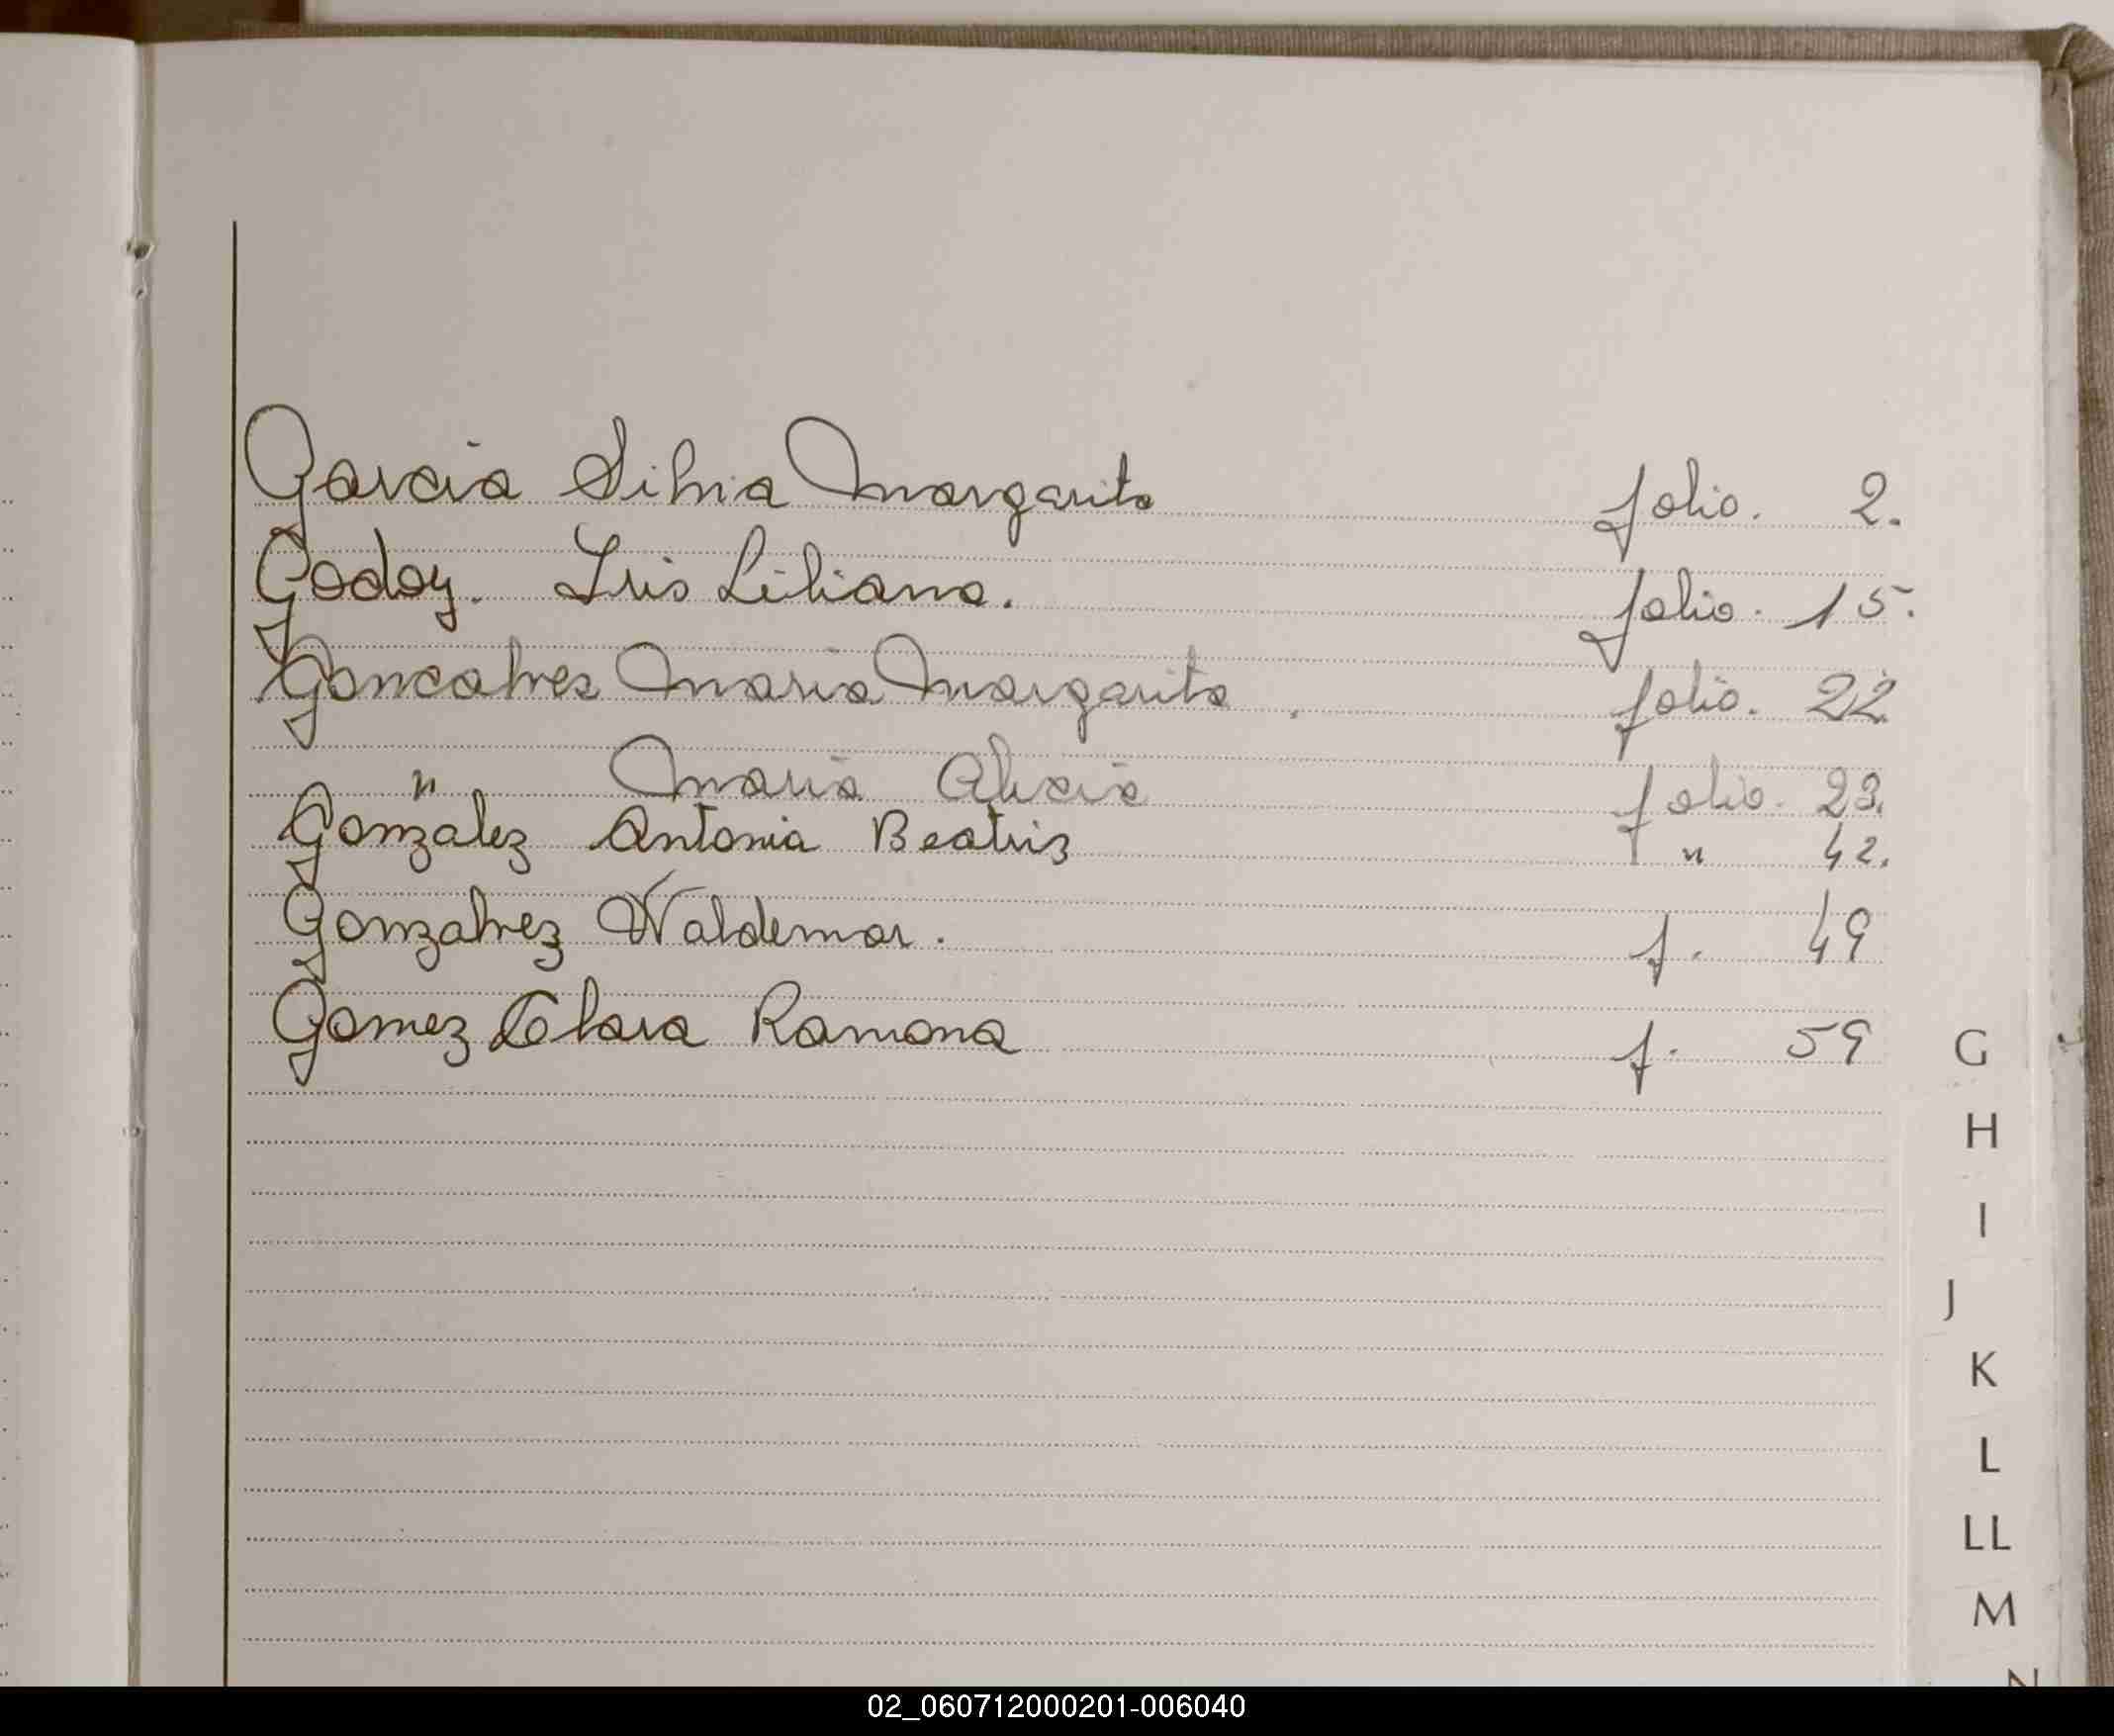 Garcia Silvia Margarita folio. 2.
Godoy. Iris Liliana. folio. 15.
Goncalves Maria Margarita. folio. 22
" Maria Alicia folio. 23.
Gonzalez Antonia Beatriz " 42.
Gonzalvez Waldemar. f. 49
Gomez Clara Ramona f. 59
G
H
I
J
K
L
LL
M
N
02_060712000201-006040